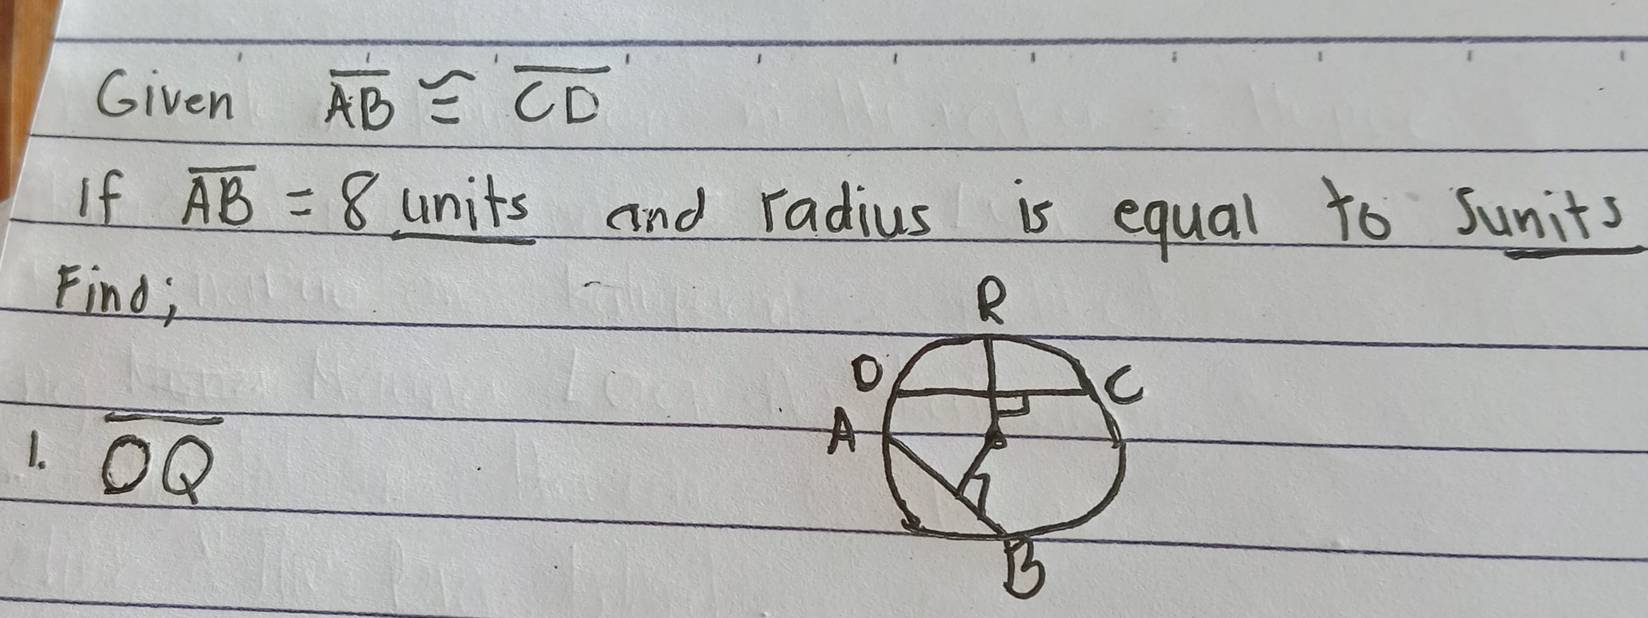 Given AB ≅ CD
If AB = 8 units and radius is equal to 5units
Find;
R
D C
A
1. OQ
B